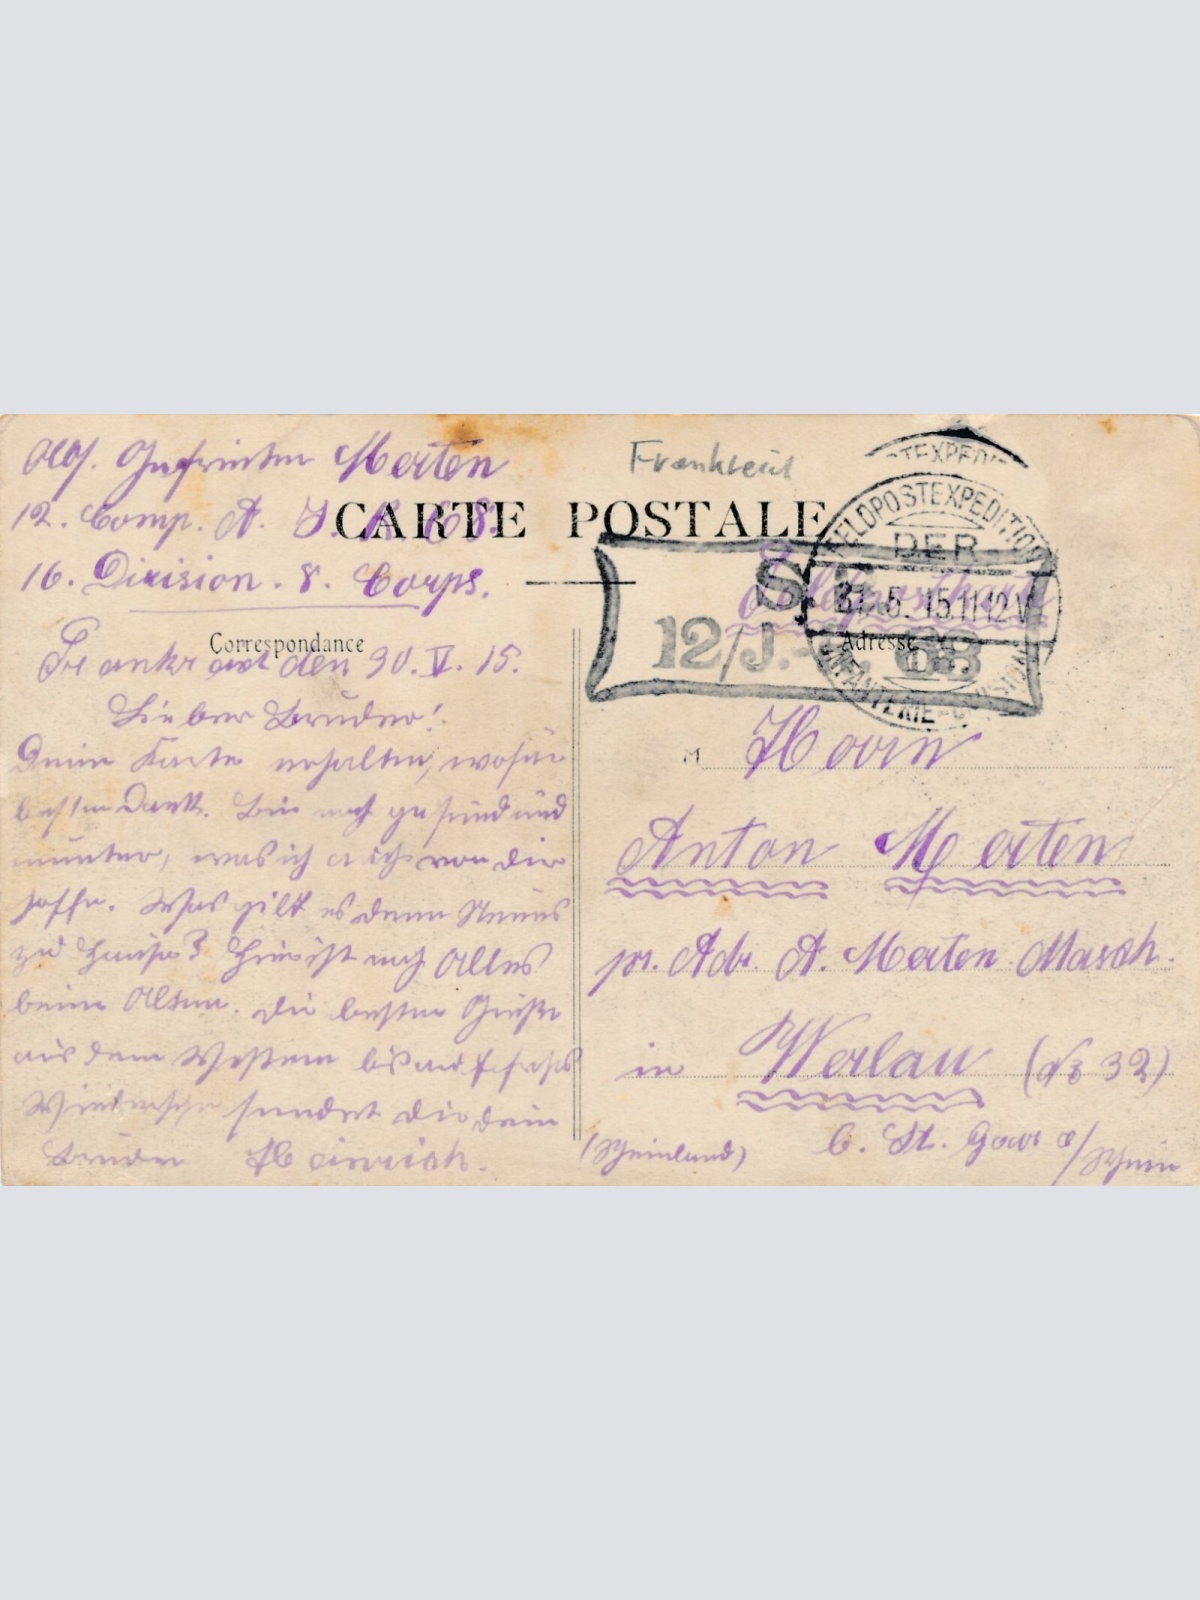 Abs. Gefreiter Merten
12. Comp. A. J. R 68.
16. Division. 8. Corps.
Frankreich
CARTE POSTALE
FELDPOSTEXPEDITION
DER
31.5.15.11-12V
INFANTERIE-DIVISION
Feldpostkarte
S.
12/J. 68
Correspondance
Adresse
den 30. V. 15.
Lieber Bruder!
Deine Karte erhalten, wofür
besten Dank. Bin noch gesund und
munter, was ich auch von dir
hoffe. Was gibt es denn Neues
zu Hause? Hier ist noch Alles
beim Alten. Die besten Grüße
aus dem Westen bis auf frohes
Wiedersehn sendet dir dein
Bruder Heinrich.
M Herrn
Anton Merten
pr. Adr. A. Merten Masch.
in Werlau (No 32)
(Rheinland) b. St. Goar a/Rhein